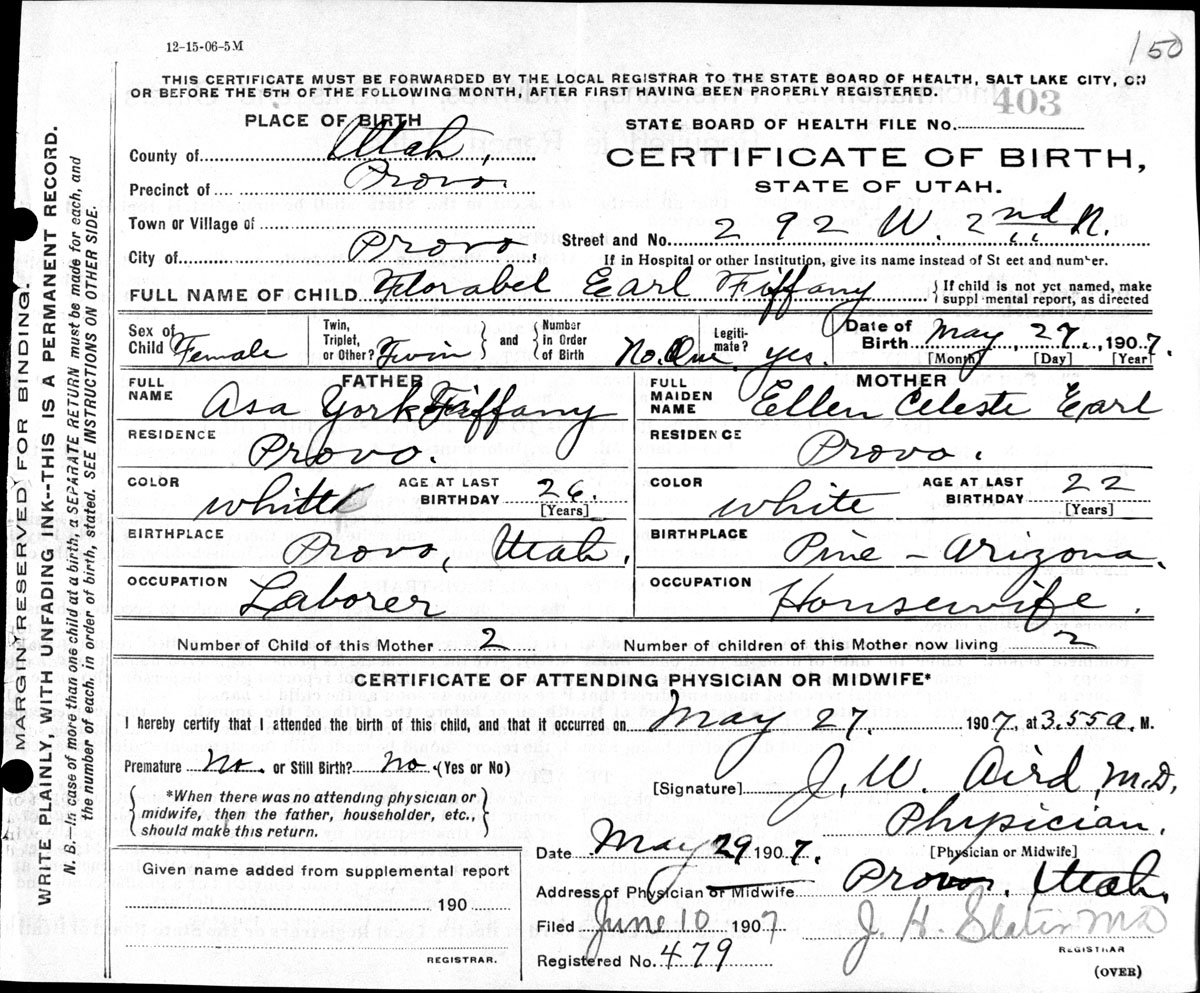 150
12-15-06-5M
THIS CERTIFICATE MUST BE FORWARDED BY THE LOCAL REGISTRAR TO THE STATE BOARD OF HEALTH, SALT LAKE CITY, ON
OR BEFORE THE 5TH OF THE FOLLOWING MONTH, AFTER FIRST HAVING BEEN PROPERLY REGISTERED.
403
PLACE OF BIRTH
STATE BOARD OF HEALTH FILE No.
County of Utah,
CERTIFICATE OF BIRTH,
STATE OF UTAH.
Precinct of Provo.
Town or Village of
Street and No. 292 W. 2nd N.
City of Provo
If in Hospital or other Institution, give its name instead of St eet and number.
FULL NAME OF CHILD Florabel Earl Tiffany
If child is not yet named, make
suppl mental report, as directed
Sex of Child Female
Twin, Triplet, or Other? Twin
and
Number in Order of Birth No. One
Legiti-mate? yes.
Date of Birth May 27, 1907.
[Month] [Day] [Year]
FATHER
FULL NAME Asa York Tiffany
MOTHER
FULL MAIDEN NAME Ellen Celeste Earl
RESIDENCE Provo.
RESIDENCE Provo.
COLOR white
AGE AT LAST BIRTHDAY 26.
[Years]
COLOR white
AGE AT LAST BIRTHDAY 22
[Years]
BIRTHPLACE Provo, Utah.
BIRTHPLACE Pine - Arizona.
OCCUPATION Laborer
OCCUPATION Housewife.
Number of Child of this Mother 2
Number of children of this Mother now living 2
CERTIFICATE OF ATTENDING PHYSICIAN OR MIDWIFE*
I hereby certify that I attended the birth of this child, and that it occurred on May 27. 1907, at 3.55 a. M.
Premature No. or Still Birth? No. (Yes or No)
[Signature] J. W. Aird, M.D.
*When there was no attending physician or
midwife, then the father, householder, etc.,
should make this return.
Physician.
[Physician or Midwife]
Date May 29 1907.
Given name added from supplemental report
190
REGISTRAR.
Address of Physician or Midwife Provo. Utah.
Filed June 10 1907
J. H. Slater MD
REGISTRAR
Registered No. 479
(OVER)
MARGIN RESERVED FOR BINDING.
WRITE PLAINLY, WITH UNFADING INK--THIS IS A PERMANENT RECORD.
N. B.--In case of more than one child at a birth, a SEPARATE RETURN must be made for each, and
the number of each in order of birth, stated. SEE INSTRUCTIONS ON OTHER SIDE.